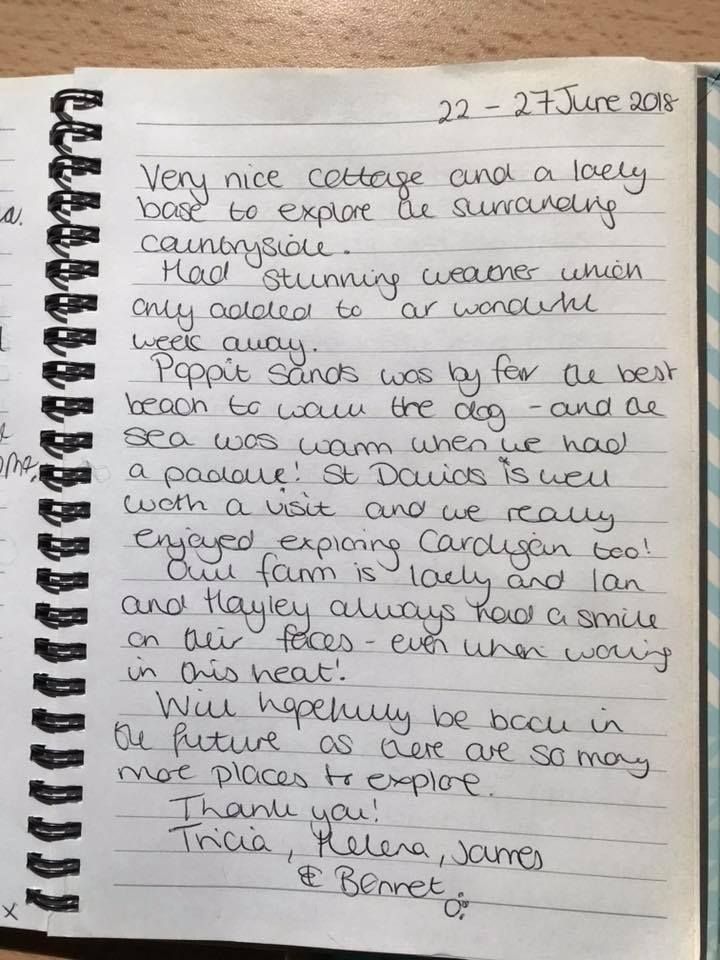 22 - 27 June 2018
Very nice cottage and a lovely
base to explore the surrounding
countryside.
Had stunning weather which
only added to our wonderful
week away.
Poppit Sands was by far the best
beach to walk the dog - and the
sea was warm when we had
a paddle! St Davids is well
worth a visit and we really
enjoyed exploring Cardigan too!
farm is lovely and Ian
and Hayley always had a smile
on their faces - even when working
in this heat!
Will hopefully be back in
the future as there are so many
more places to explore.
Thank you!
Tricia, Helena, James
& Bennet
a.
x